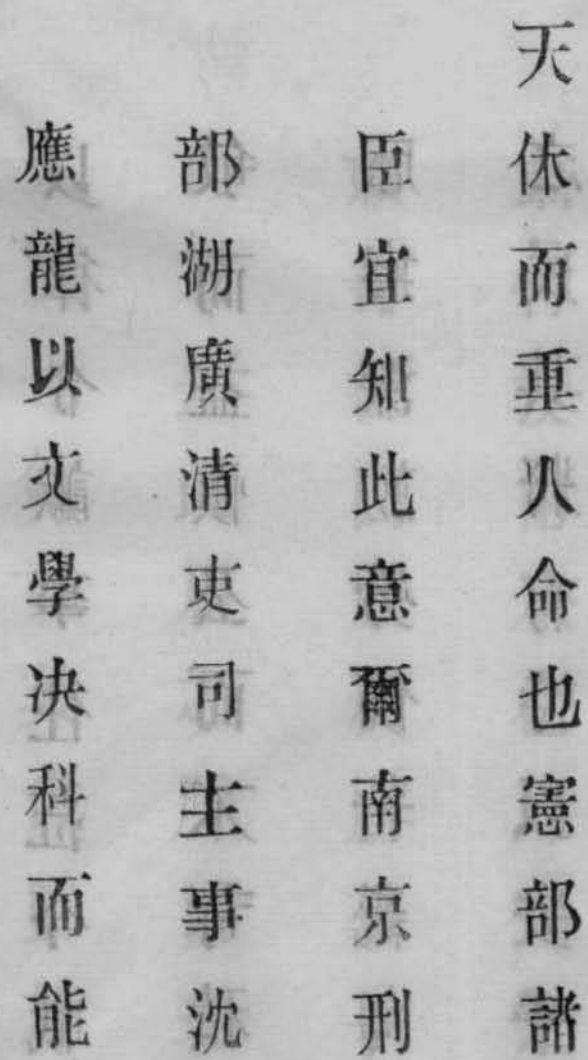 天休而重人命也憲部諸
臣宜知此意爾南京刑
部湖廣清吏司主事沈
應龍以文學決科而能